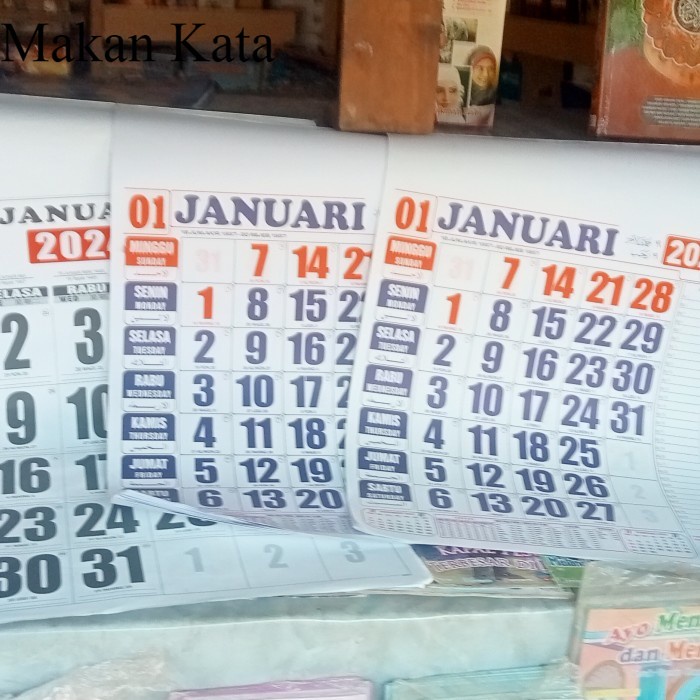 Makan Kata
JANUA
202
ELASA RABU
2 3
9 10
16 17
23 24 25
30 31 1 2 3
01 JANUARI
MINGGU SUNDAY 31 7 14 21
SENIN MONDAY 1 8 15 22
SELASA TUESDAY 2 9 16 2
RABU WEDNESDAY 3 10 17 2
KAMIS THURSDAY 4 11 18 2
JUMAT FRIDAY 5 12 19
SABTU 6 13 20
01 JANUARI
202
MINGGU SUNDAY 31 7 14 21 28
SENIN MONDAY 1 8 15 22 29
SELASA TUESDAY 2 9 16 23 30
RABU WEDNESDAY 3 10 17 24 31
KAMIS THURSDAY 4 11 18 25 1
JUMAT FRIDAY 5 12 19 26 2
SABTU SATURDAY 6 13 20 27 3
Ayo Men
dan Me